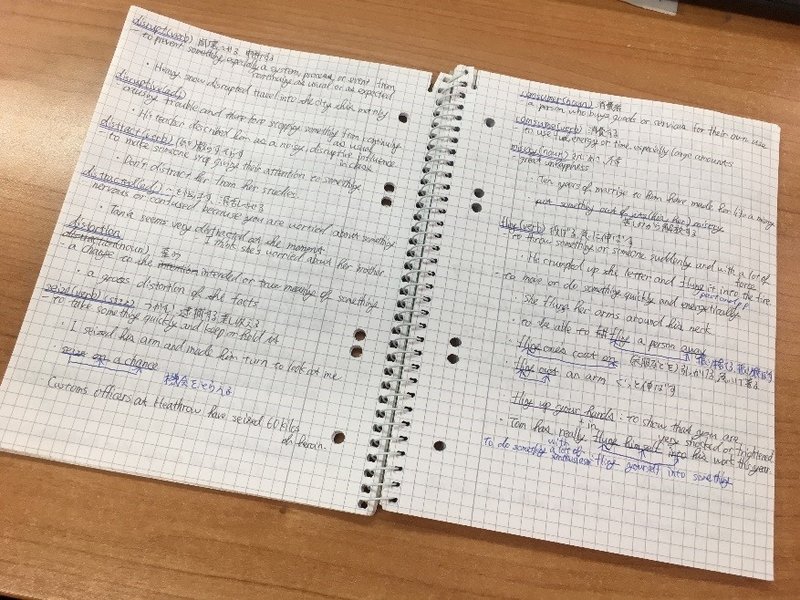 disrupt(verb) 混乱させる, 中断する
- to prevent something especially a system, process, or event from
continuing as usual or as expected
• Heavy snow disrupted travel into the city this
disruptive(adj)
- causing trouble and therefore stopping something from continuing
as usual
• His teacher described him as a noisy, disruptive influence
in class
distract (verb)
- to make someone stop giving their attention to something
• Don't distract her from her studies.
distracted(adj)
nervous or confused because you are worried about something
• Tania seems very distracted at the moment
I think she's worried about her mother
distortion
(noun) 歪め
- a change to the intended or true meaning of something
• a gross distortion of the facts
seize(verb) つかむ,
- to take something quickly and keep or hold it
• I seized his arm and made him turn to look at me.
• seize on a chance
機会をとらえる
Customs officers at Heathrow have seized 60 kilos
of heroin.
consumer(noun) 消費者
a person who buys goods or services for their own use
consume(verb) 消費する
- to use fuel, energy or time, especially large amounts
misery(noun)
great unhappiness
Ten years of marriage to him have made her life a misery
put something out of its (his, her) misery
fling(verb)
- to throw something or someone suddenly and with a lot of
force
• He crumpled up the letter and flung it into the fire
past and p.p
- to move or do something quickly and energetically
She flung her arms around his neck
- to be able to fling a person away
• fling ones coat on
fling out an arm
fling up your hands : to show that you are
very shocked or frightened
• Tom has really flung himself into his work this year.
to do something with a lot of enthusiasm : fling yourself into something